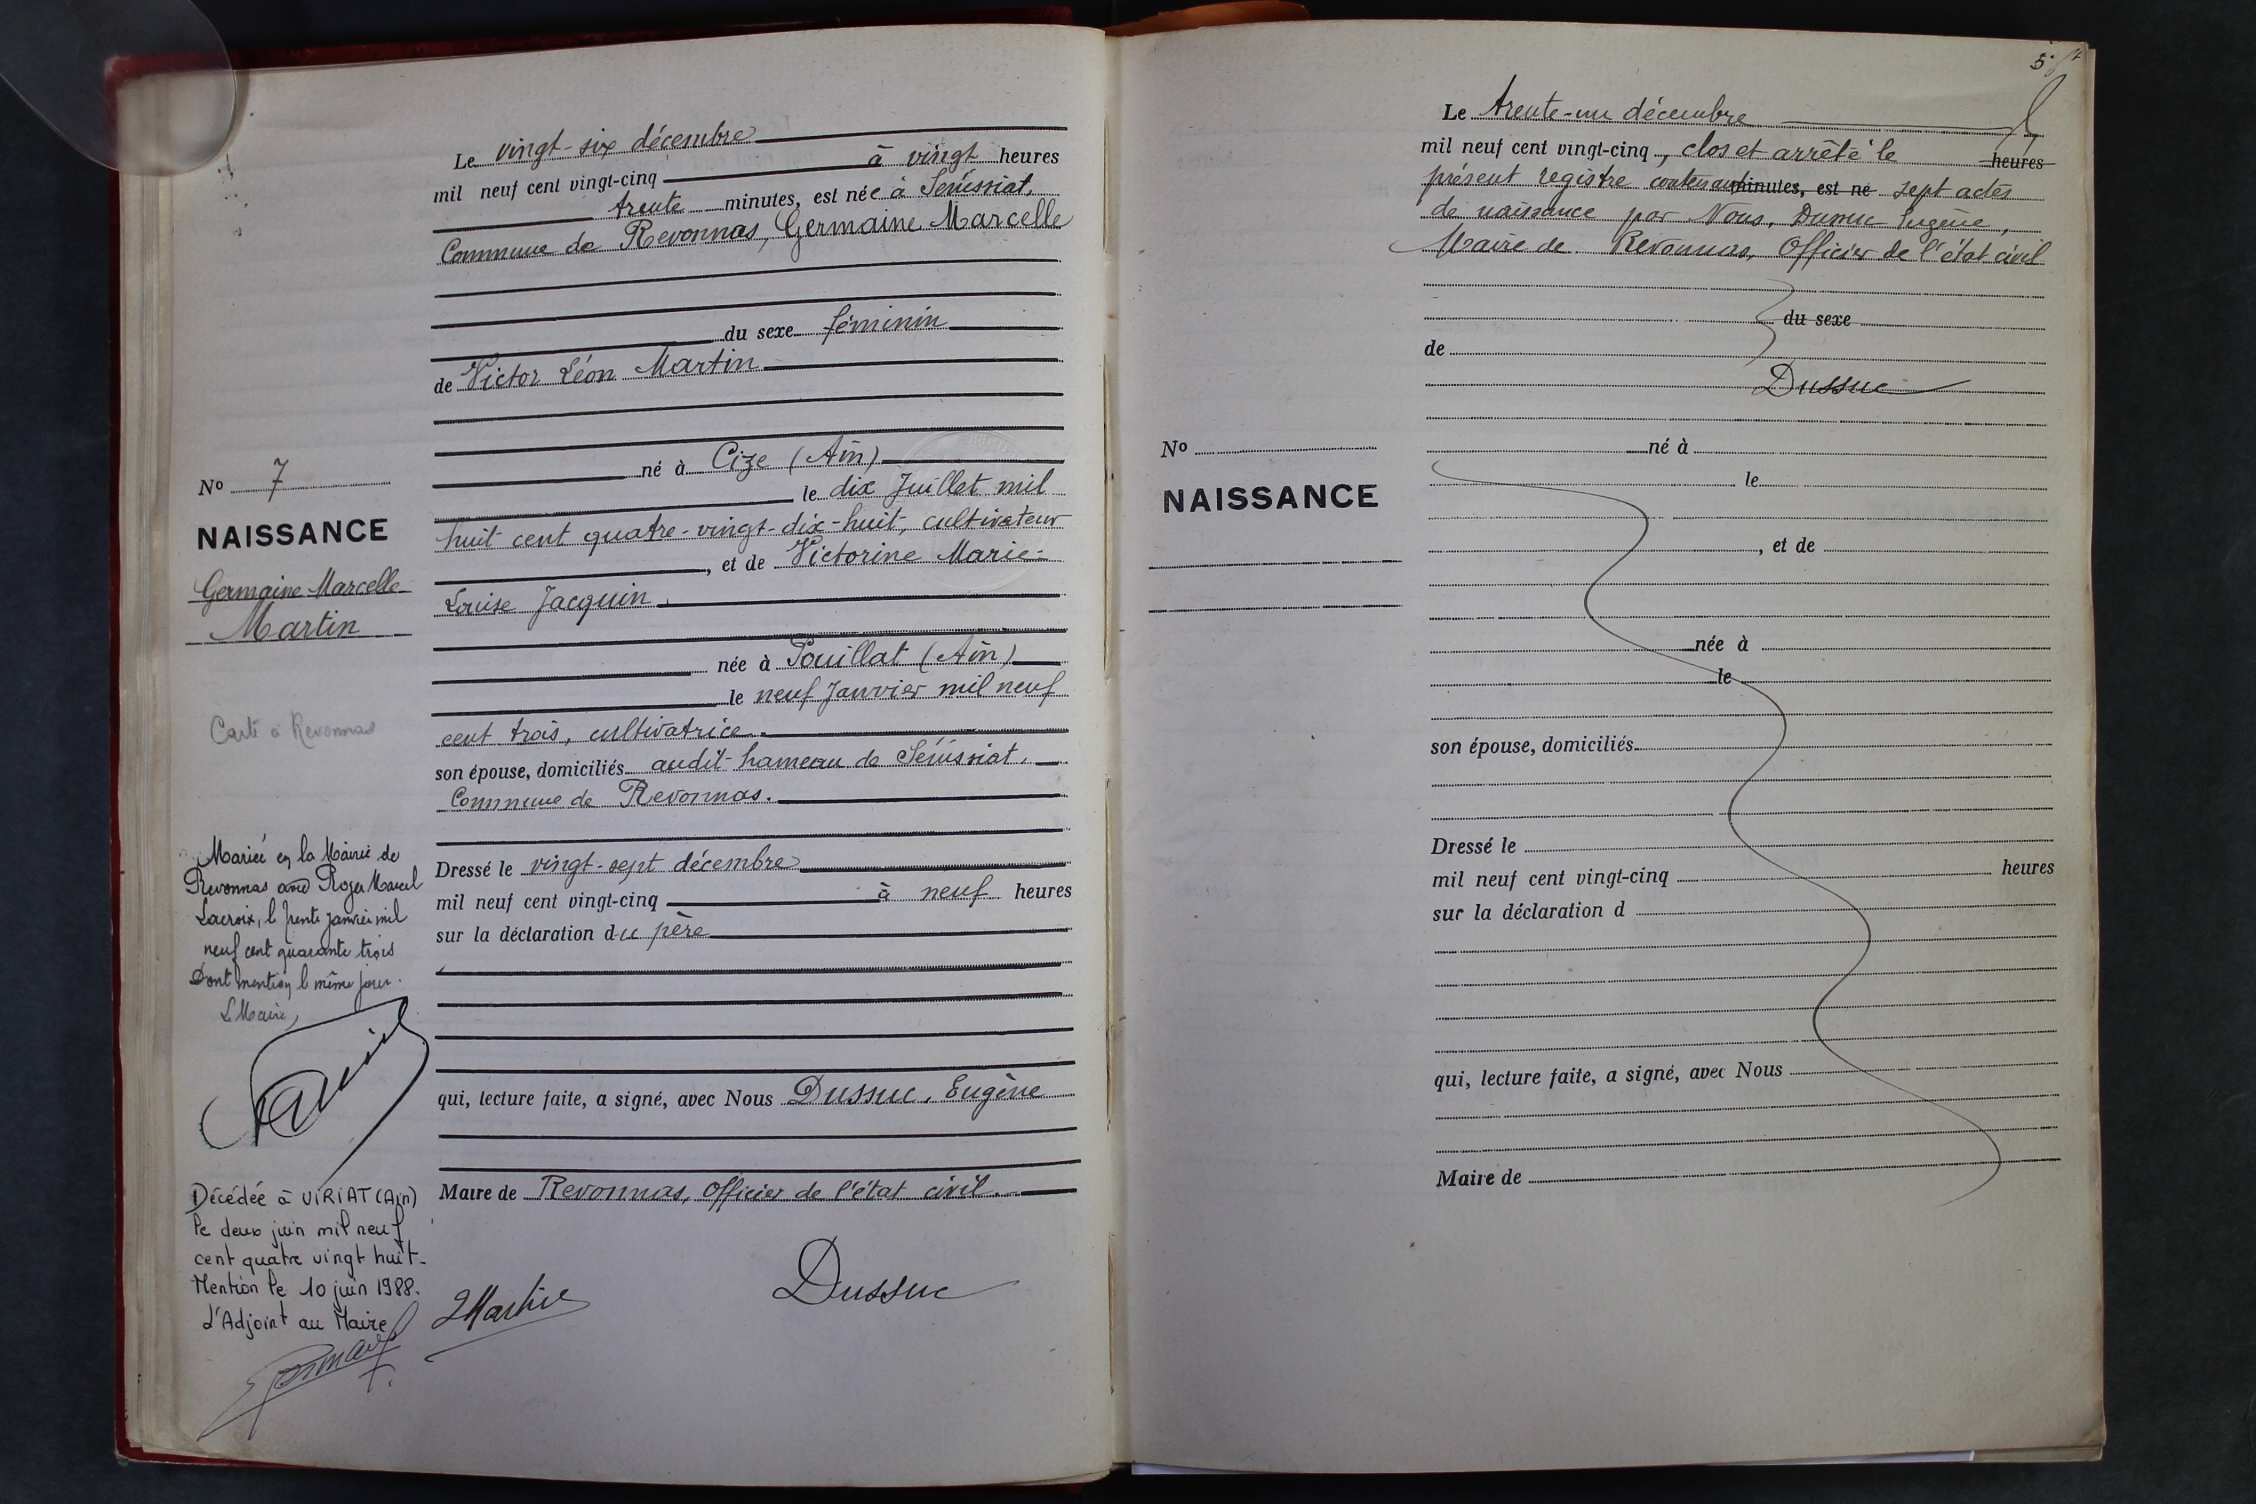 Le vingt-six décembre
mil neuf cent vingt-cinq à vingt heures
trente minutes, est née à Senissiat,
Commune de Revonnas, Germaine Marcelle
du sexe féminin
de Victor Léon Martin
né à Cize (Ain)
le dix Juillet mil
huit cent quatre-vingt-dix-huit, cultivateur
, et de Victorine Marie-
Louise Jacquin
née à Pouillat (Ain)
le neuf Janvier mil neuf
cent trois, cultivatrice
son épouse, domiciliés audit hameau de Senissiat,
Commune de Revonnas.
Dressé le vingt-sept décembre
mil neuf cent vingt-cinq à neuf heures
sur la déclaration du père
qui, lecture faite, a signé, avec Nous Dussuc, Eugène
Maire de Revonnas, Officier de l'état civil.
LMartin
Dussuc
No 7
NAISSANCE
Germaine Marcelle
Martin
Carte à Revonnas
Mariée en la Mairie de
Revonnas avec Roger Marcel
Lacroix, le trente janvier mil
neuf cent quarante trois
Dont mention le même jour.
Le Maire,
Décédée à VIRIAT (Ain)
le deux juin mil neuf
cent quatre vingt huit-
Mention le 10 juin 1988.
L'Adjoint au Maire
5
Le trente-un décembre
mil neuf cent vingt-cinq, clos et arrêté le heures
présent registre contenant minutes, est né sept actes
de naissance par Nous, Dussuc Eugène,
Maire de Revonnas, Officier de l'état civil
du sexe
de
Dussuc
né à
le
, et de
née à
le
son épouse, domiciliés
Dressé le
mil neuf cent vingt-cinq heures
sur la déclaration d
qui, lecture faite, a signé, avec Nous
Maire de
No
NAISSANCE